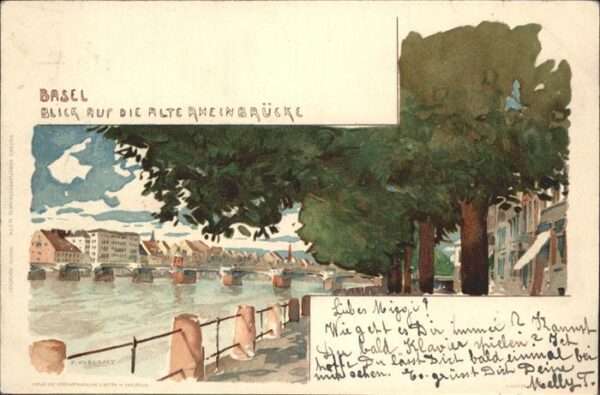 BASEL
BLICK AUF DIE ALTE RHEINBRÜCKE
Liebes Miggi!
Wie geht es Dir immer? Kannst
Du bald Klavier spielen? Ich
hoffe Du lässt Dich bald einmal bei
uns sehen. Es grüsst Dich Deine
Melly T.